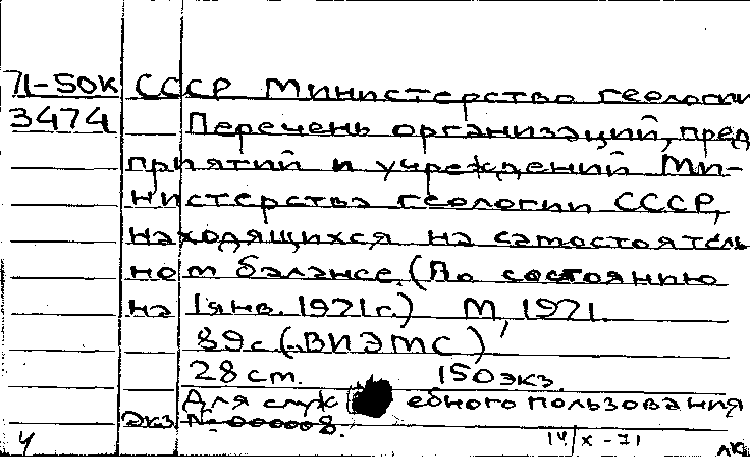 71-50к СССР Министерство геологии
3474 Перечень организаций, пред
приятий и учреждений Ми-
нистерства геологии СССР,
находящихся на самостоятель
ном балансе. (По состоянию
на 1 янв. 1971 г.) М, 1971.
89 с (ВИЭМС)
28 см. 150 экз.
Для служ ебного пользования
экз № 00008.
4 14/X-71